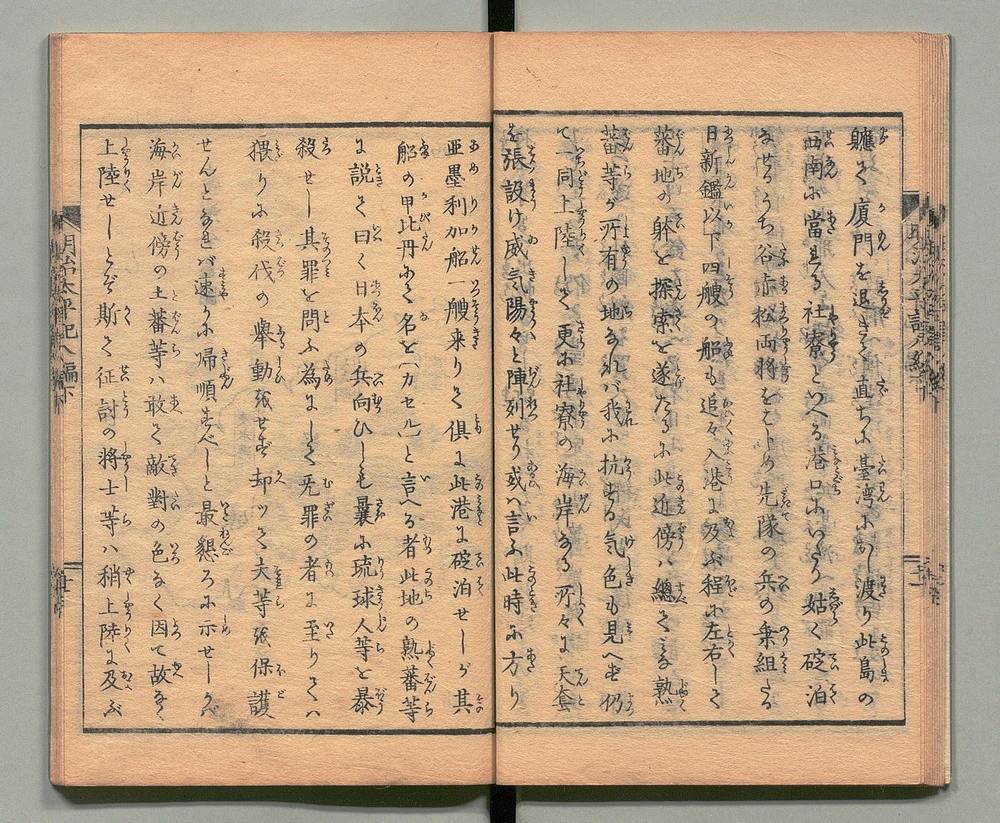 聽て廈門を退きて直ちに臺湾にをし渡り此島の
西南に當れる社寮といへる港口にいたり姑く碇泊
なせるうち谷赤松両将をはじめ先隊の兵の乗組たる
日新鑑以下四艘の船も追々入港に及ぶ程に左右して
蕃地の躰を探索を遂たるに此近傍ハ總てミな熟
蕃等が所有の地なれバ我に抗する気色も見へず仍
て一同上陸して更に社寮の海岸なる所々に天套
を張設け威気陽々と陣列せり或ハ言ふ此時に方り
亜墨利加船一艘来りて倶に此港に碇泊せしが其
船の甲比丹にて名を「カセル」と言へる者此地の熟蕃等
に説て曰く日本の兵向ひしも曩に琉球人等を暴
殺せし其罪を問ふ為にして无罪の者に至りてハ
猥りに殺伐の擧動張せず却ツて夫等張保護
せんとなれバ速かに帰順すべしと最懇ろに示せしかバ
海岸近傍の土蕃等ハ敢て敵對の色なく因て故なく
上陸せしとぞ斯て征討の将士等ハ稍上陸に及ぶ
明治太平記八編下